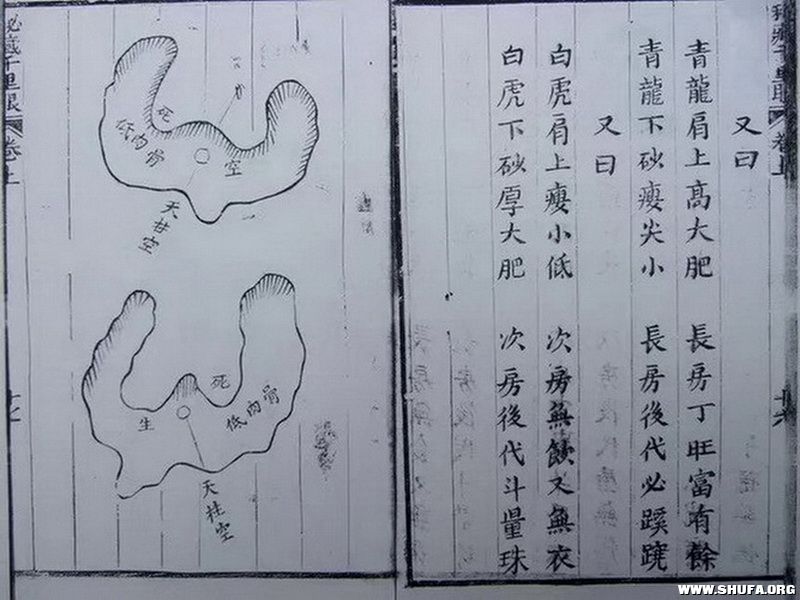 又曰
青龍肩上高大肥 長房丁旺富有餘
青龍下砂瘦尖小 長房後代必蹊蹺
又曰
白虎肩上瘦小低 次房無又無衣
白虎下砂厚大肥 次房後代斗量珠
千里眼 卷上
十六
死
低肉骨
空
天柱空
死
生
低肉骨
天柱空
秘藏千里眼 卷上
十七
WWW.SHUFA.ORG